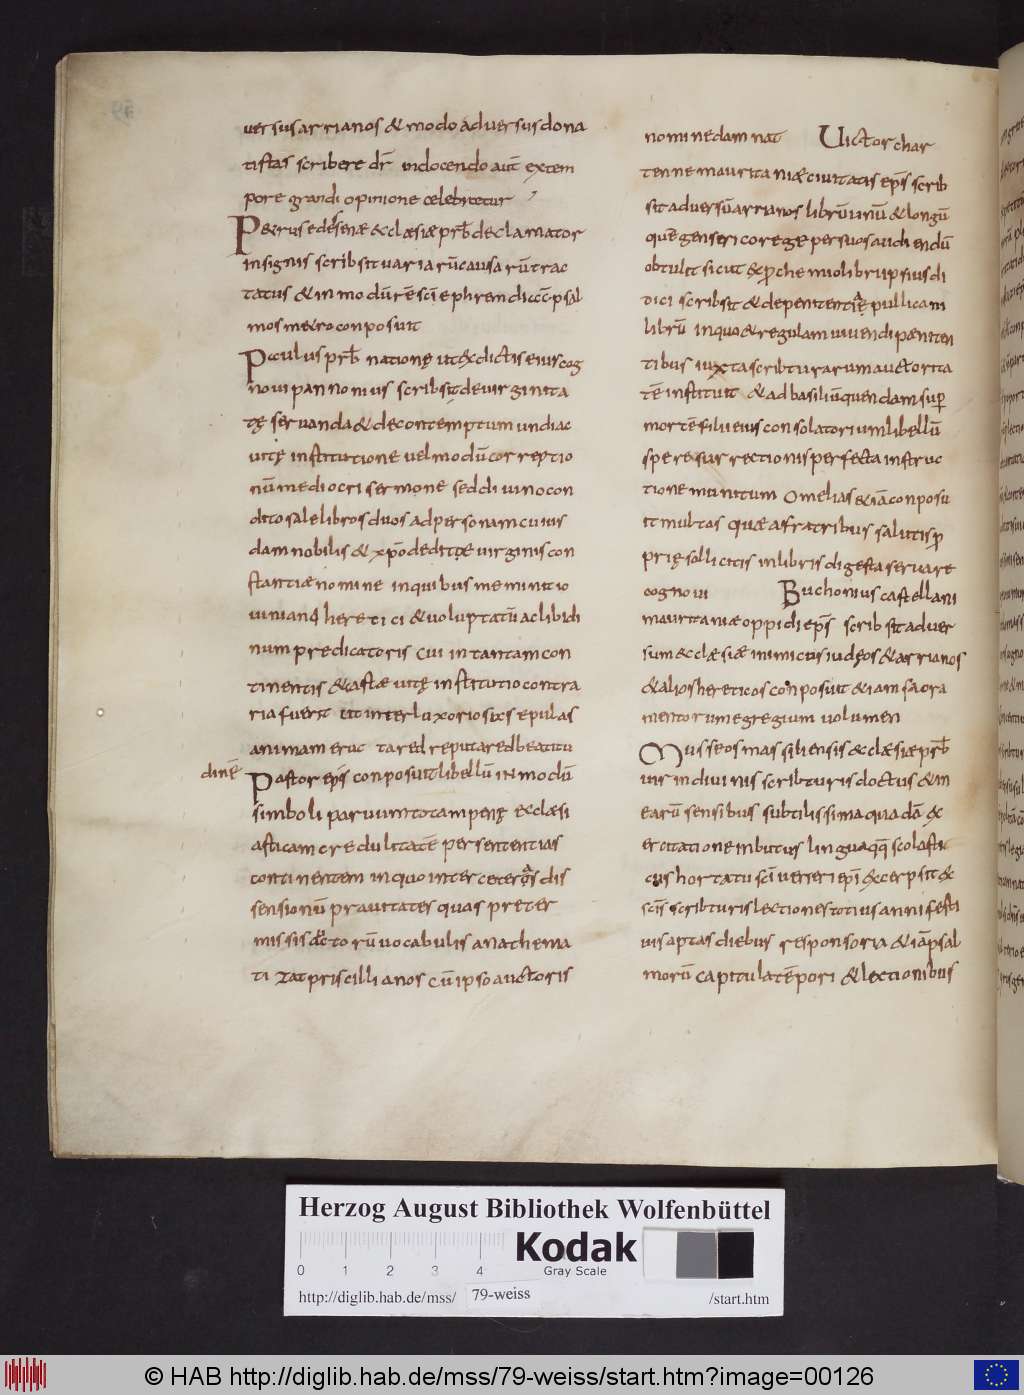 uersus arrianos & modo aduersus dona
tistas scribere dr̄ in docendo aut̄ extem
pore grandi opinione celebritetur
P&rus edessenæ æcclæsiæ prb̄ declamator
insignis scribsit uariarū causarū trac
tatus & in modū sc̄i ephrem diacc̄ psal
mos m&ro conposuit
P culus prb̄ natione ut ex dictis eius cog
noui pannonius scribsit de uirginita
tę seruanda & de contemptum undiac
uitę institutione uel modū correptio
nū mediocri sermone sed diuino con
dito sale libros duos ad personam cuius
dam nobilis & xp̄o deditæ uirginis con
stantiæ nomine in quibus meminit io
uiniani heretici & uoluptatū ac libidi
num predicatoris cui in tantam con
tinentis & castæ uitę institutio contra
ria fuerit ut inter luxoriosixs epulas
animam eruc tared reputared beatitu
dinē Pastor ep̄s conposuit libellū in modū
simboli paruum totam penę æcclæsi
asticam credulitatē per sententias
continentem in quo inter ceteras dis
sensionū prauitates quas preter
missis auctorū uocabulis anathema
tizat priscillianos cū ipso auctoris
nomine damnat Uictor char
tenne mauritaniæ ciuitatis ep̄s scrib
sit aduersū arrianos librū unū & longū
quē genserico rege per suos audiendū
obtulit sicut ex prohemio libri ipsius di
dici scribsit & de penitentia puplicam
librū in quo & regulam uiuendi peniten
tibus iuxta scribturarum auctorita
tē instituit & ad basiliū quendam super
mortē filii eius consolatorium libellū
spe resurrectionis perfecta instruc
tione munitum Omelias & iā conposu
it multos quæ a fratribus salutis p̄
prię sollicitis in libris digesta seruare
cognoui Buchonius castellani
mauritaniæ oppidi ep̄s scribsit aduer
sum æcclæsiæ inimicus iudęos & arrianos
& alios hereticos conposuit & iam sacra
mentorum egregium uolumen
Musseos massiliensis æcclæsiæ prb̄
uir in diuinis scribturis doctus & in
earū sensibus subtilissima quadā ex
ercitatione inbutus lingua quoq scolasti
cus hortatu sc̄i ueneri ep̄i excerpsit ex
sc̄is scribturis lectiones totius anni festi
uis aptas diebus responsoria & iā psal
morū capitula tēpori & lectionibus
Herzog August Bibliothek Wolfenbüttel
0 1 2 3 4
Kodak
Gray Scale
http://diglib.hab.de/mss/ 79-weiss /start.htm
© HAB http://diglib.hab.de/mss/79-weiss/start.htm?image=00126